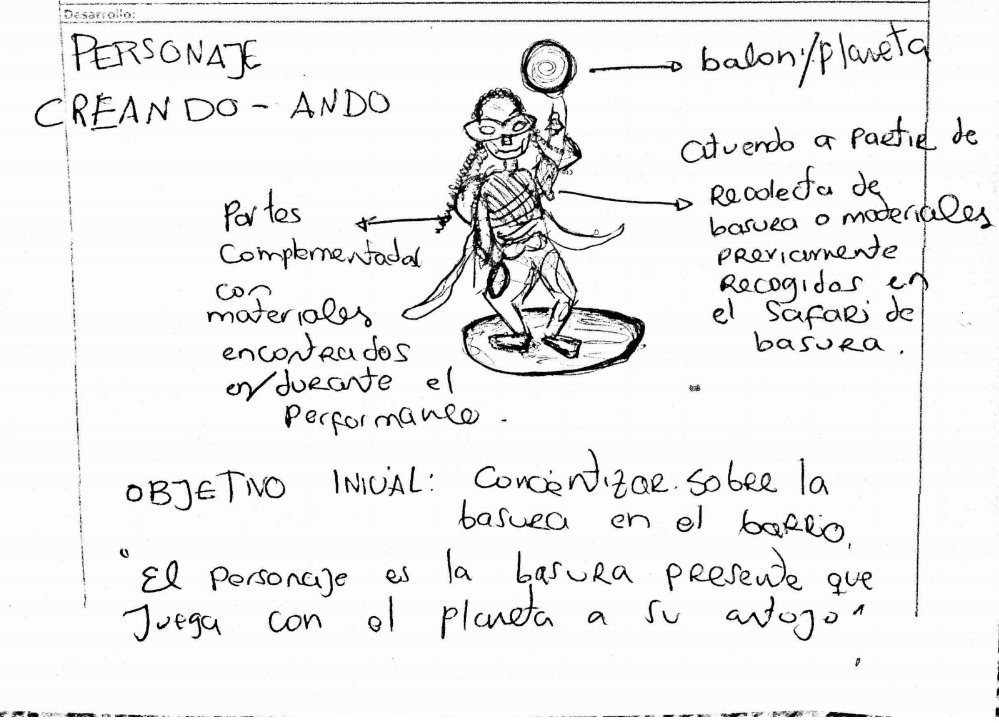 Desarrollo:
PERSONAJE
CREANDO - ANDO
balon/planeta
atuendo a partir de
Recolecta de
basura o materiales
previamente
Recogidos en
el Safari de
basura.
Partes
Complementadas
con
materiales
encontrados
en/durante el
Performance.
OBJETIVO INICIAL: Concientizar sobre la
basura en el barrio.
"El personaje es la basura presente que
Juega con el planeta a su antojo"